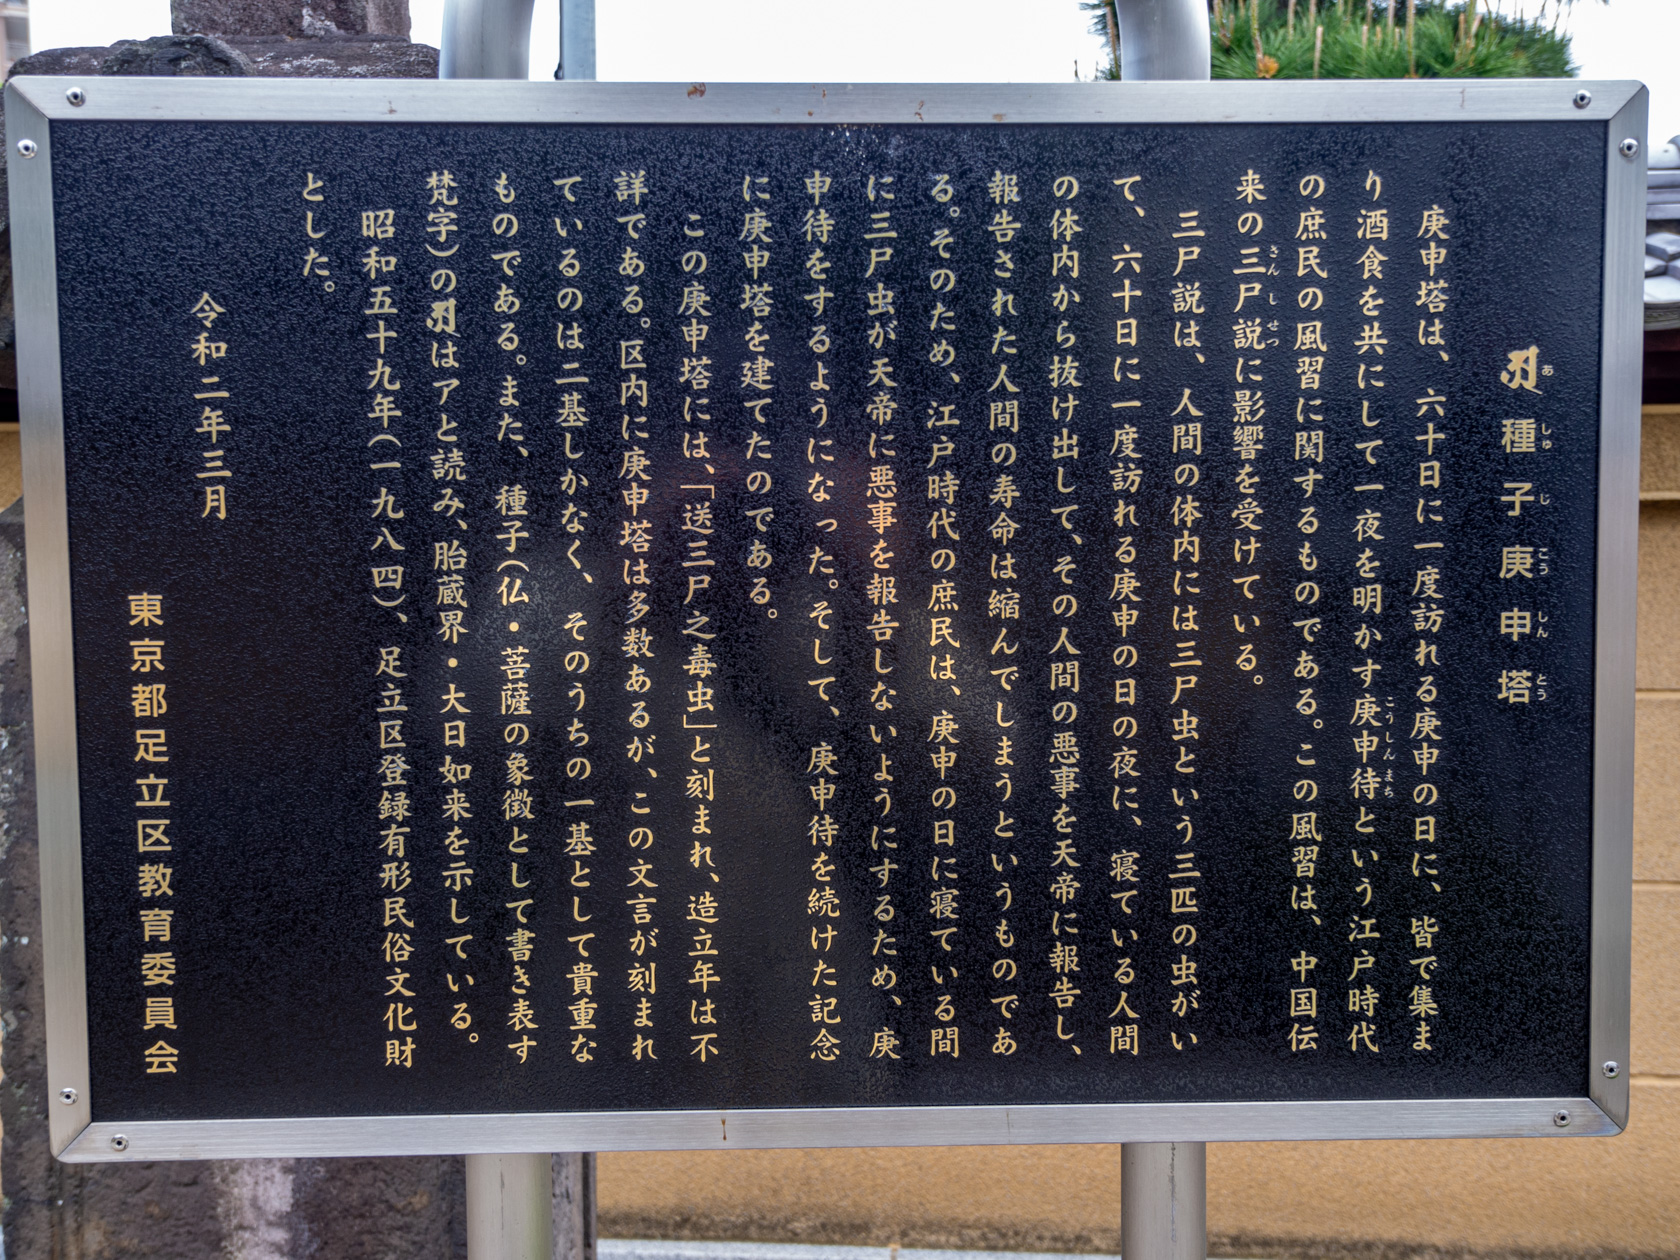 𑖀種子庚申塔
あ しゅ じ こう しん とう
庚申塔は、六十日に一度訪れる庚申の日に、皆で集ま
り酒食を共にして一夜を明かす庚申待という江戸時代
こうしんまち
の庶民の風習に関するものである。この風習は、中国伝
来の三尸説に影響を受けている。
さんしせつ
三尸説は、人間の体内には三尸虫という三匹の虫がい
て、六十日に一度訪れる庚申の日の夜に、寝ている人間
の体内から抜け出して、その人間の悪事を天帝に報告し、
報告された人間の寿命は縮んでしまうというものであ
る。そのため、江戸時代の庶民は、庚申の日に寝ている間
に三尸虫が天帝に悪事を報告しないようにするため、庚
申待をするようになった。そして、庚申待を続けた記念
に庚申塔を建てたのである。
この庚申塔には、「送三尸之毒虫」と刻まれ、造立年は不
詳である。区内に庚申塔は多数あるが、この文言が刻まれ
ているのは二基しかなく、そのうちの一基として貴重な
ものである。また、種子(仏・菩薩の象徴として書き表す
梵字)の𑖀はアと読み、胎蔵界・大日如来を示している。
昭和五十九年(一九八四)、足立区登録有形民俗文化財
とした。
令和二年三月
東京都足立区教育委員会